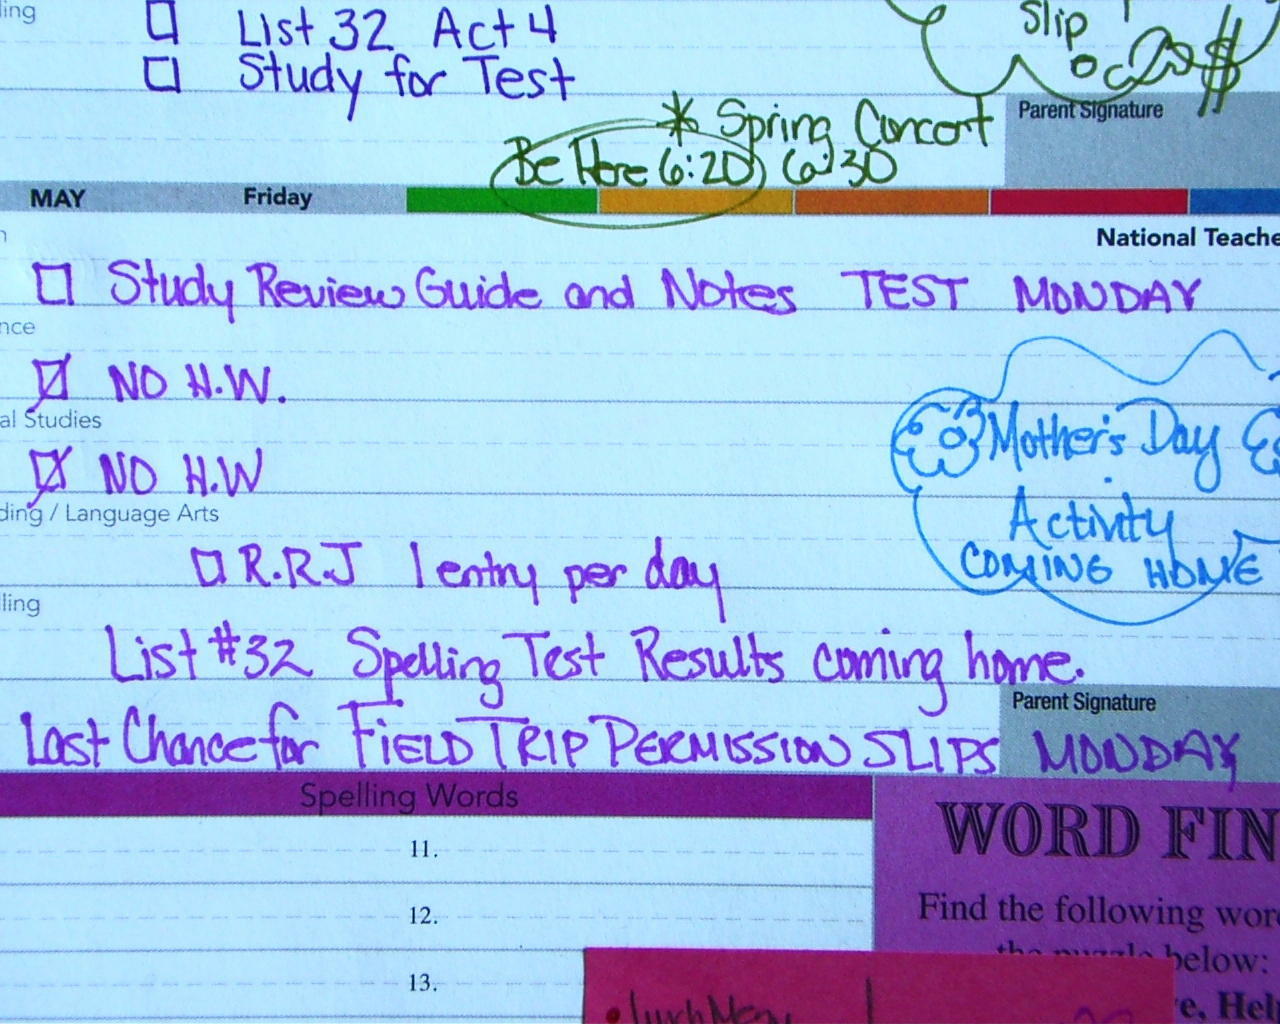 ling
List 32 Act 4
Slip
Study for Test
$
Parent Signature
* Spring Concert
Be Here 6:20 6:30
MAY Friday
National Teache
Study Review Guide and Notes TEST MONDAY
nce
NO H.W.
al Studies
NO H.W
Mother's Day
Activity
COMING HOME
ding / Language Arts
R.R.J 1 entry per day
lling
List #32 Spelling Test Results coming home.
Parent Signature
Last Chance for FIELD TRIP PERMISSION SLIPS MONDAY
Spelling Words
WORD FIN
11.
12.
13.
Find the following wor
the puzzle below:
e, Hel
Lunch Menu